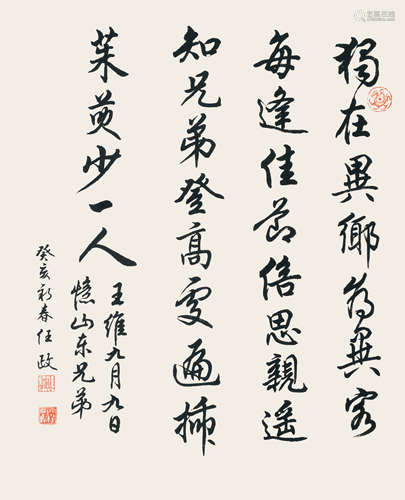 獨在異鄉為異客
每逢佳節倍思親遥
知兄弟登高處遍插
茱萸少一人
王維九月九日
憶山东兄弟
癸亥新春任政